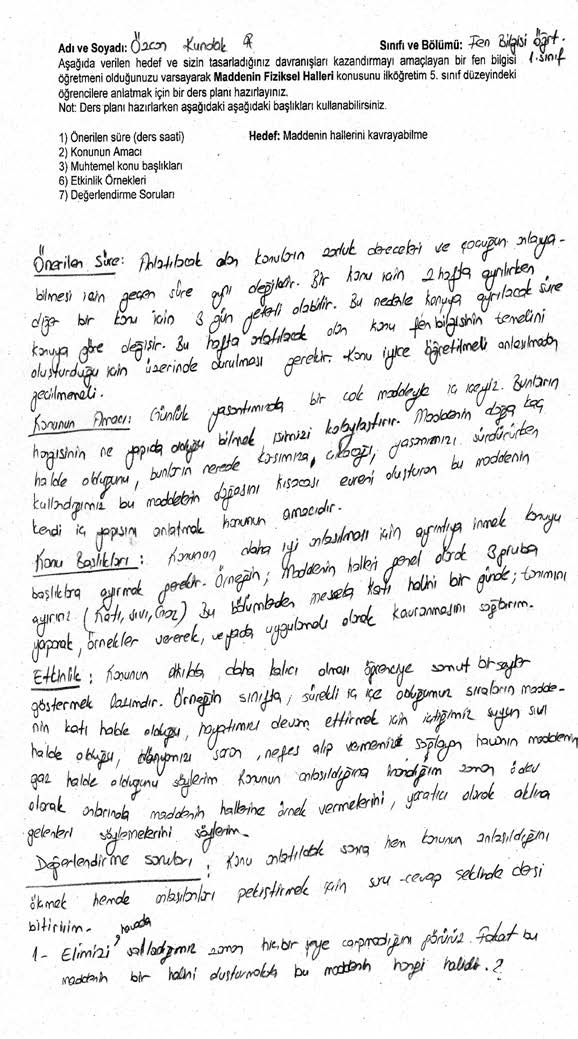 Adı ve Soyadı: Özcan Kundak Sınıfı ve Bölümü: Fen Bilgisi Öğrt.
Aşağıda verilen hedef ve sizin tasarladığınız davranışları kazandırmayı amaçlayan bir fen bilgisi 1.sınıf
öğretmeni olduğunuzu varsayarak Maddenin Fiziksel Halleri konusunu ilköğretim 5. sınıf düzeyindeki
öğrencilere anlatmak için bir ders planı hazırlayınız.
Not: Ders planı hazırlarken aşağıdaki aşağıdaki başlıkları kullanabilirsiniz.
1) Önerilen süre (ders saati) Hedef: Maddenin hallerini kavrayabilme
2) Konunun Amacı
3) Muhtemel konu başlıkları
6) Etkinlik Örnekleri
7) Değerlendirme Soruları
Önerilen Süre: Anlatılacak olan konuların zorluk dereceleri ve çocuğun anlaya-
bilmesi için geçen süre aynı değildir. Bir konu için 2 hafta ayrılırken
diğer bir konu için 3 gün yeterli olabilir. Bu nedenle konuya ayrılacak süre
konuya göre değişir. Bu hafta anlatılacak olan konu fen bilgisinin temelini
oluşturduğu için üzerinde durulması gerekir. Konu iyice öğretilmeli anlaşılmadan
geçilmemeli.
Konunun Amacı: Günlük yaşantımızda bir çok maddeyle iç içeyiz. Bunların
hangisinin ne yapıda olduğu bilmek işimizi kolaylaştırır. Maddenin doğa kaç
halde olduğunu, bunların nerede karşımıza çıkacağı, yaşamımızı sürdürürken
kullandığımız bu maddelerin doğasını kısacası evreni oluşturan bu maddenin
kendi iç yapısını anlatmak konunun amacıdır.
Konu Başlıkları: Konunun daha iyi anlaşılması için ayrıntıya inmek konuyu
başlıklara ayırmak gerekir. Örneğin; Maddenin halleri genel olarak 3 gruba
ayırırız (Katı, sıvı, Gaz) Bu bölümlerden mesela katı halini bir günde; tanımını
yaparak, örnekler vererek, veyada uygulamalı olarak kavranmasını sağlarım.
Etkinlik: Konunun akılda daha kalıcı olması öğrenciye somut birşeyler
göstermek lazımdır. Örneğin sınıfta, sürekli iç içe olduğumuz sıraların madde-
nin katı halde olduğu, hayatımızı devam ettirmek için içtiğimiz suyun sıvı
halde olduğu, dünyamızı saran, nefes alıp vermemizi sağlayan havanın maddenin
gaz halde olduğunu söylerim Konunun anlaşıldığına inandığım zaman ödev
olarak onlarında maddenin hallerine örnek vermelerini, yaratıcı olarak aklına
gelenleri söylemelerini söylerim.
Değerlendirme soruları: Konu anlatıldıktan sonra hem konunun anlaşıldığını
ölçmek hemde anlaşılanları pekiştirmek için soru-cevap şeklinde dersi
bitiririm.
1- Elimizi havada salladığımız zaman hiçbir şeye çarpmadığını görürüz. Fakat bu
maddenin bir halini oluşturmakta bu maddenin hangi halidir.?